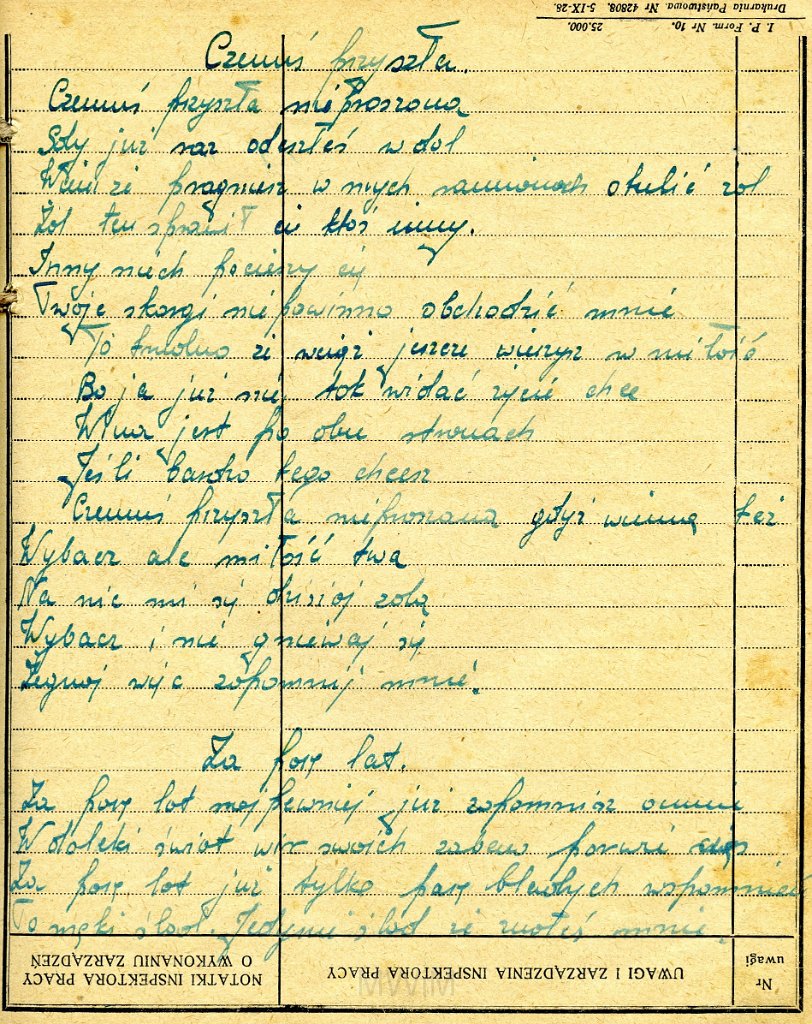 Drukarnia Państwowa. Nr 42808. 5-IX-28.
I. P. Form. Nr 10. 25.000.
Czemuś przyszła.
Czemuś przyszła nieproszona
Gdy już raz odeszłeś w dal
Wiem że pragniesz w mych ramionach otulić żal
Żal ten sprawił ci ktoś inny.
Inny niech pocieszy cię
Twoje skargi nie powinno obchodzić mnie
To trudno że wciąż jeszcze wierzysz w miłość
Bo ja już nie tak widać życie chce
Wina jest po obu stronach
Jeśli bardzo tego chcesz
Czemuś przyszła nieproszona gdyż winną też
Wybacz ale miłość twa
Na nic mi się dzisiaj zda
Wybacz i nie gniewaj się
Żegnaj więc zapomnij mnie.
Za parę lat.
Za parę lat najpewniej już zapomnisz o mnie
W daleki świat wir swoich zabaw porwie cię
Za parę lat już tylko parę bladych wspomnień
To nikły ślad. Jedynie ślad że znałeś mnie.
NOTATKI INSPEKTORA PRACY O WYKONANIU ZARZĄDZEŃ
UWAGI I ZARZĄDZENIA INSPEKTORA PRACY
Nr uwagi
MWIM